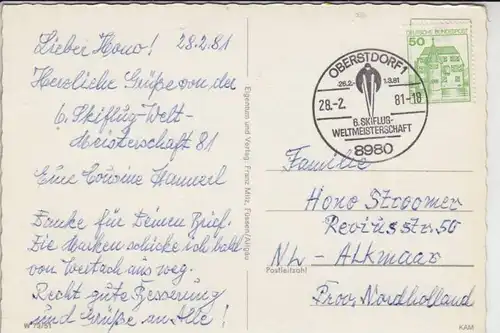 Lieber Hono! 28.2.81
Herzliche Grüße von der
6. Skiflug-Welt-
Meisterschaft 81
Eure Cousine Hannerl
Danke für Deinen Brief.
Die Marken schicke ich bald
von weg.
Recht gute Besserung
und Grüße an Alle!
W 73/51
Eigentum und Verlag: Franz Milz, Füssen/Allgäu
DEUTSCHE BUNDESPOST
50
OBERSTDORF 1
26.2.- 1.3.81
28.-2. 81-18
6. SKIFLUG-
WELTMEISTERSCHAFT
8980
Familie
Hono Stroomer
Reviusstr. 50
NL - ALKMAAR
Postleitzahl
Prov. Nordholland
KAM